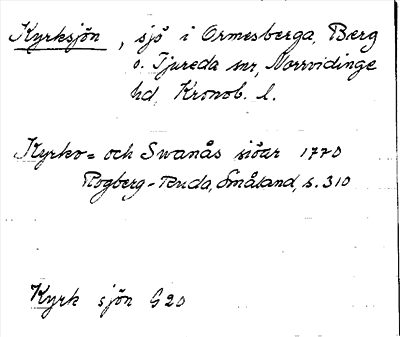 Kyrksjön, sjö i Ormesberga, Berg
o. Tjureda snr, Norrvidinge
hd, Kronob. l.
Kyrko= och Swanås siöar 1770
Rogberg-Ruda, Småland, s. 310
Kyrk sjön G20